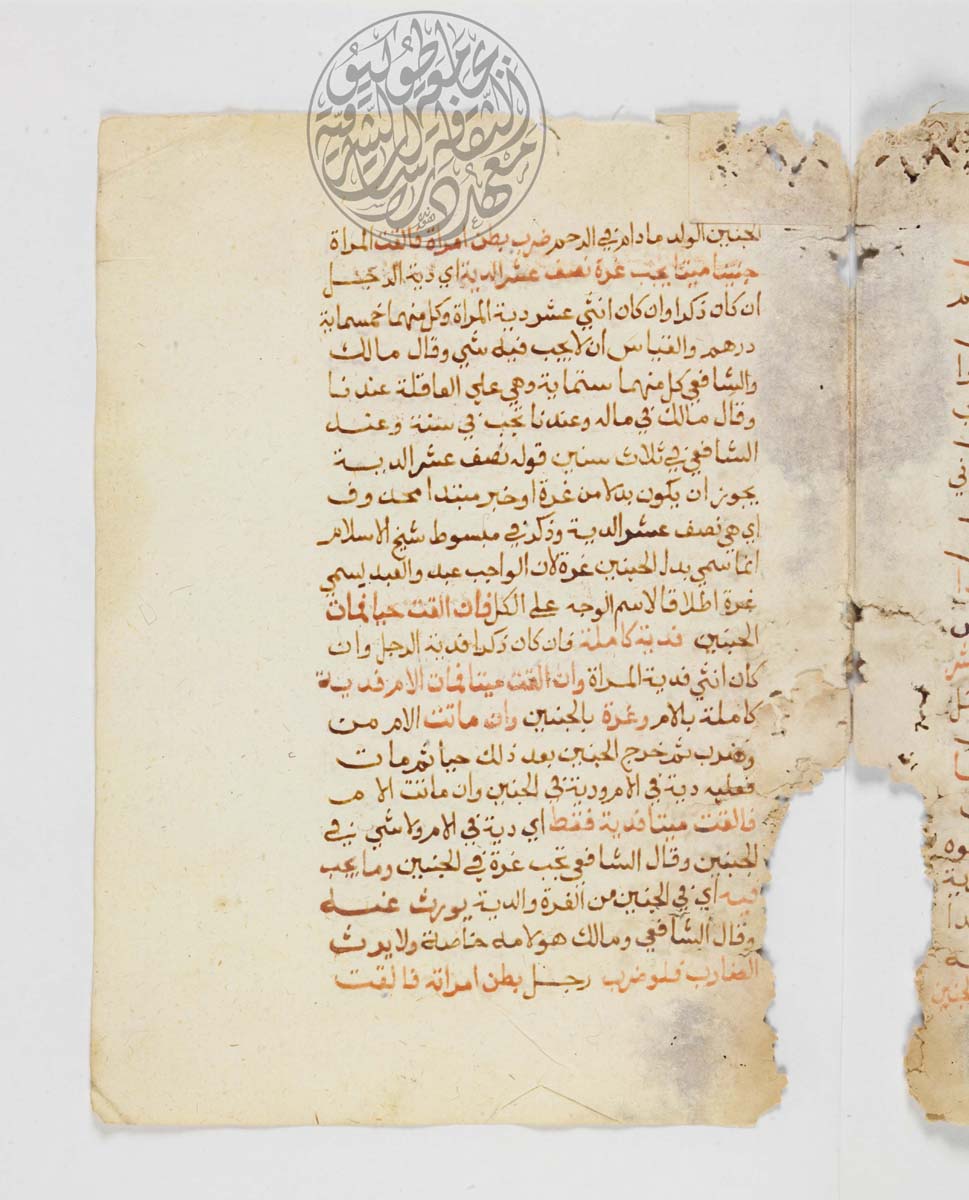 الجنين الولد مادام في الرحم ضرب بطن امراة فالقت المراة
جنينا ميتا يجب غرة نصف عشر الدية اي دية الرجل
ان كان ذكرا وان كان انثي عشر دية المراة وكل منهما خمسماية
درهم والقياس أن لا يجب فيه شي وقال مالك
والشافعي كل منهما ستماية وهي علي العاقلة عندنا
وقال مالك في ماله وعندنا تجب في سنة وعند
الشافعي في ثلاث سنين قوله نصف عشر الدية
يجوز ان يكون بدلا من غرة او خبر مبتدا محذوف
اي هي نصف عشر الدية وذكر في مبسوط شيخ الاسلام
انما سمي بدل الجنين غرة لان الواجب عبد والعبد يسمي
غرة اطلاقا لاسم الوجه علي الكل فان القت حيا فمات
الجنين فدية كاملة فان كان ذكرا فدية الرجل وان
كان انثي فدية المراة وان القت ميتا فمات الام فدية
كاملة بالام وغرة بالجنين وان ماتت الام من
وضرب ثم خرج الجنين بعد ذلك حيا ثم مات
فعليه دية في الام ودية في الجنين وان ماتت الام
فالقت ميتا فدية فقط اي دية في الام ولا شي في
الجنين وقال الشافعي تجب غرة في الجنين وما يجب
فيه اي في الجنين من الغرة والدية يورث عنه
وقال الشافعي ومالك هو لامه خاصة ولا يرث
الضارب فلو ضرب رجل بطن امراته فالقت